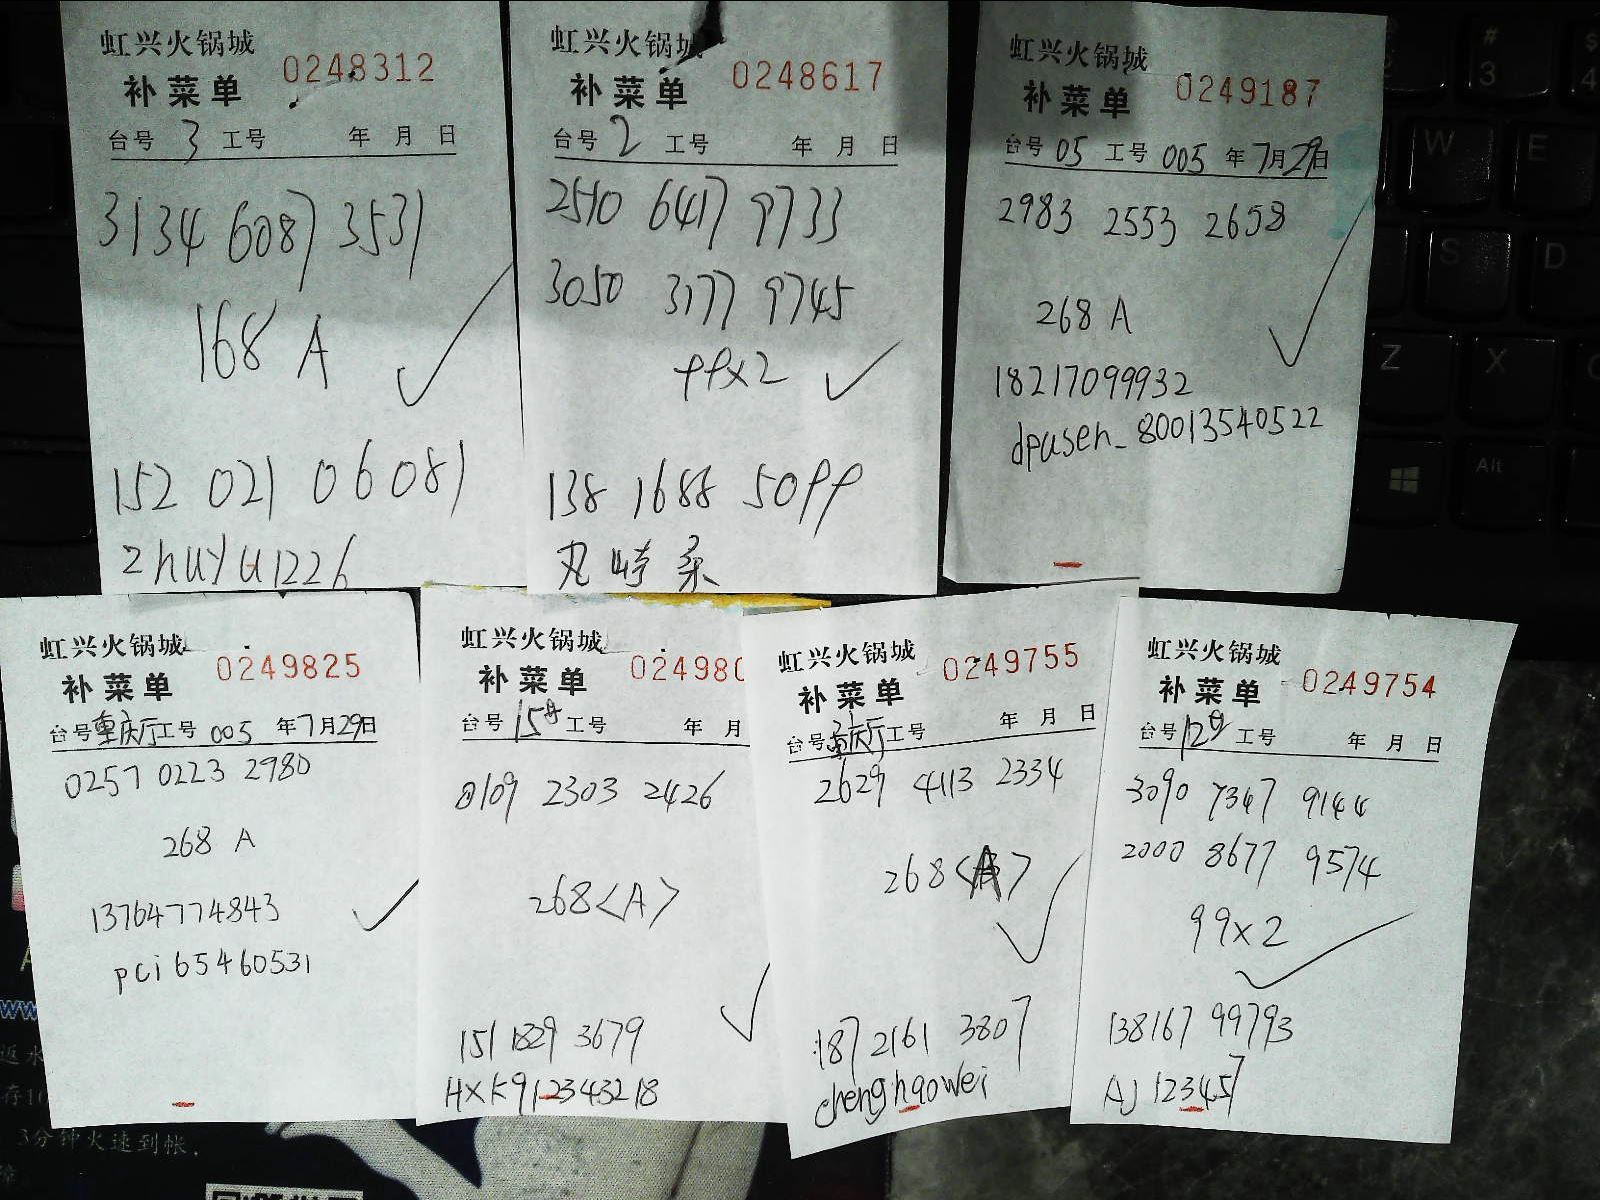 虹兴火锅城 0248312
补菜单
台号 3 工号 年 月 日
3134 6087 3531
168 A
152 021 06081
zhuyu1226
虹兴火锅城 0248617
补菜单
台号 2 工号 年 月 日
2510 6417 9733
3050 3177 9745
99x2
138 1688 5099
丸崎柔
虹兴火锅城 0249187
补菜单
台号 05 工号 005 年 7月29日
2983 2553 2658
268 A
18217099932
dpuser_80013540522
虹兴火锅城 0249825
补菜单
台号 重庆厅 工号 005 年 7月29日
0257 0223 2980
268 A
13764774843
pci65460531
虹兴火锅城 024980
补菜单
台号 15# 工号 年 月
0109 2303 2426
268<A>
151 1829 3679
HXK912343218
虹兴火锅城 0249755
补菜单
台号 重庆厅 工号 年 月 日
2629 4113 2334
268<A>
187 2161 3807
chenghaowei
虹兴火锅城 0249754
补菜单
台号 12# 工号 年 月 日
3090 7347 9144
2000 8677 9574
99x2
138167 99793
AJ123457
# 3
$ 4
W E
S D
Z X
Alt
3分钟火速到帐.